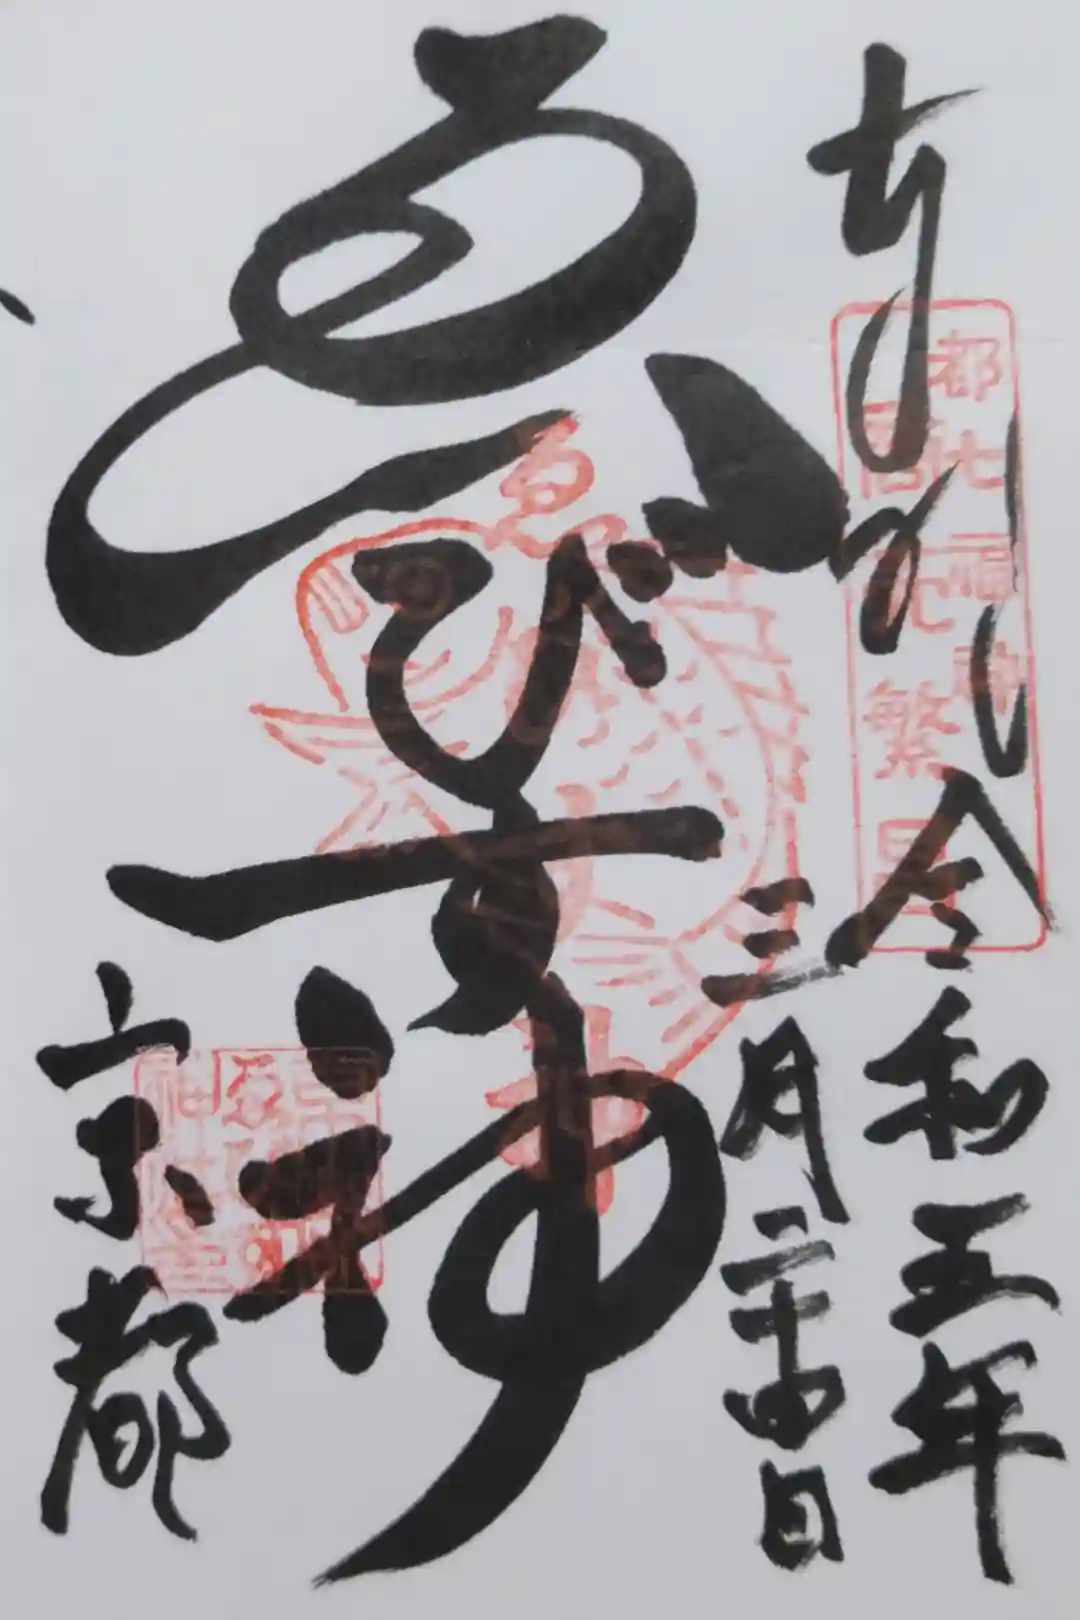 奉拝
令和五年
三月二十四日
ゑびす神
京都
都七福神
商売繁昌
ゑ